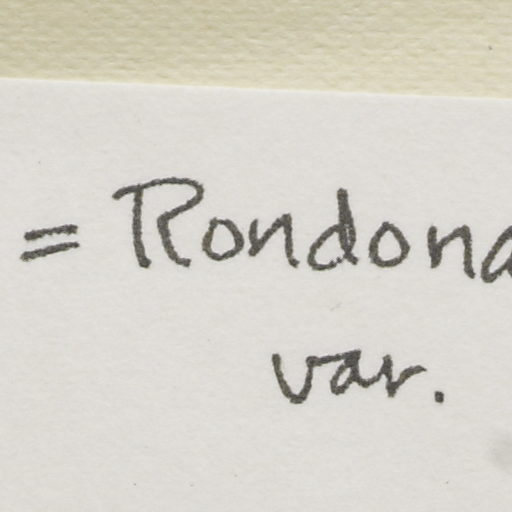 = Rondona
var.